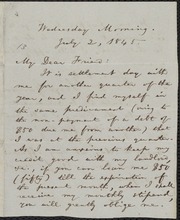 Wednesday Morning.
July 2, 1845
My Dear Friend:
It is settlement day with
me for another quarter of the
year, and I find myself in
the same predicament (owing to
the non-payment of a debt of
$50 due me from another) that
I was at the previous quarter.
As I am anxious to keep my
credit good with my landlord,
if you can loan me $50
(fifty) till the expiration of
the present month, when I shall
receive my
will greatly oblige me.